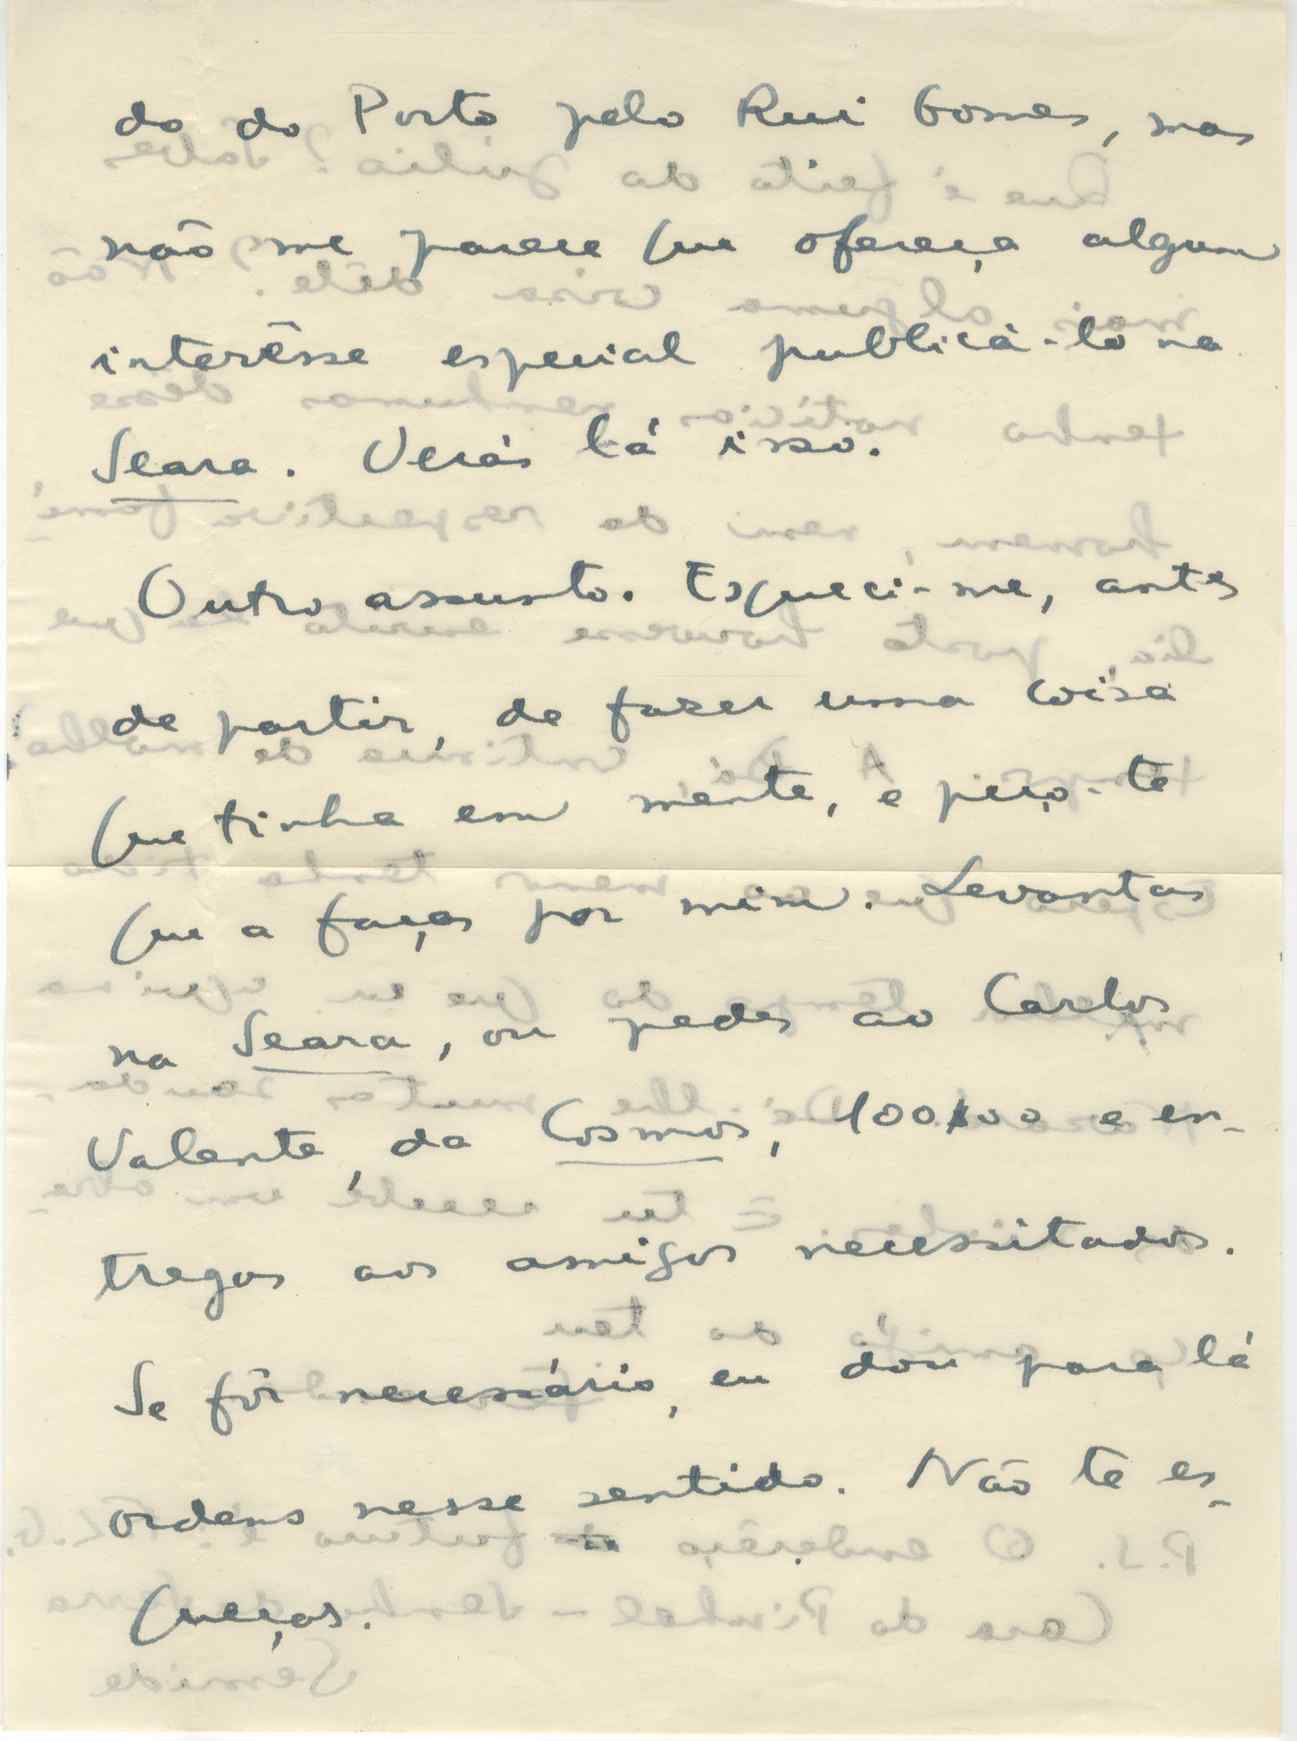 do do Porto pelo Rui Gomes, mas
não me parece que ofereça algum
interêsse especial publicá-lo na
Seara. Verás lá isso.
Outro assunto. Esqueci-me, antes
de partir, de fazer uma coisa
que tinha em mente, e peço-te
que a faças por mim. Levantas
na Seara, ou pedes ao Carlos
Valente, da Cosmos, 100$00 e en-
tregas aos amigos necessitados.
Se fôr necessário, eu dou para lá
ordens nesse sentido. Não te es-
queças.